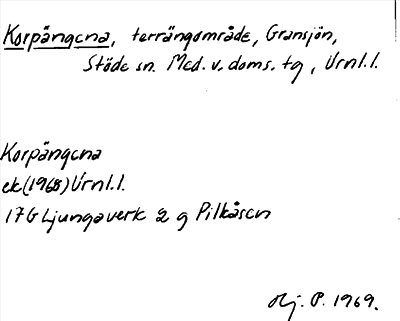 Korpängena, terrängområde, Gransjön,
Stöde sn. Med. v. doms. tg, Vrnl.l.
Korpängena
ek (1968) Vrnl.l.
17G Ljungaverk 2 g Pilkåsen
P. 1969.